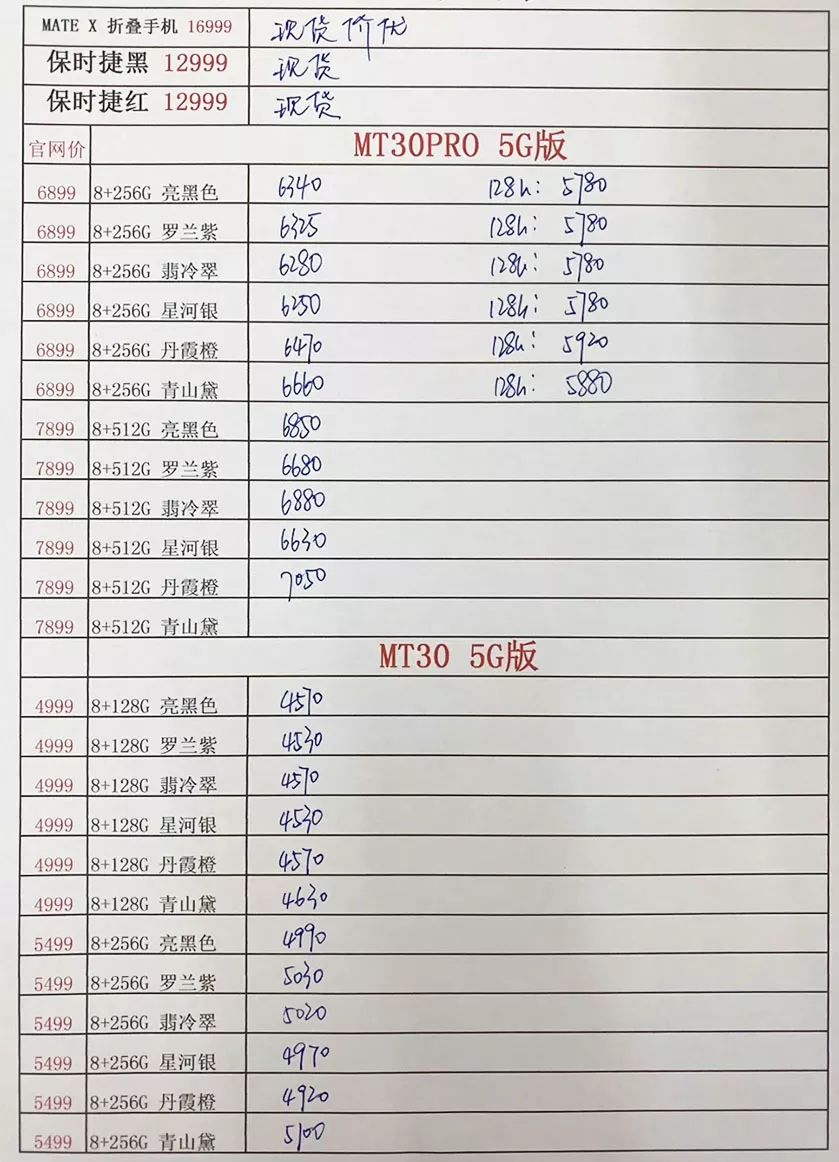 MATE X 折叠手机 16999 现货价优
保时捷黑 12999 现货
保时捷红 12999 现货
官网价 MT30PRO 5G版
6899 8+256G 亮黑色 6340 128h: 5780
6899 8+256G 罗兰紫 6325 128h: 5780
6899 8+256G 翡冷翠 6280 128h: 5780
6899 8+256G 星河银 6250 128h: 5780
6899 8+256G 丹霞橙 6470 128h: 5920
6899 8+256G 青山黛 6660 128h: 5880
7899 8+512G 亮黑色 6850
7899 8+512G 罗兰紫 6680
7899 8+512G 翡冷翠 6880
7899 8+512G 星河银 6630
7899 8+512G 丹霞橙 7050
7899 8+512G 青山黛
MT30 5G版
4999 8+128G 亮黑色 4570
4999 8+128G 罗兰紫 4530
4999 8+128G 翡冷翠 4570
4999 8+128G 星河银 4530
4999 8+128G 丹霞橙 4570
4999 8+128G 青山黛 4630
5499 8+256G 亮黑色 4990
5499 8+256G 罗兰紫 5030
5499 8+256G 翡冷翠 5020
5499 8+256G 星河银 4970
5499 8+256G 丹霞橙 4920
5499 8+256G 青山黛 5100